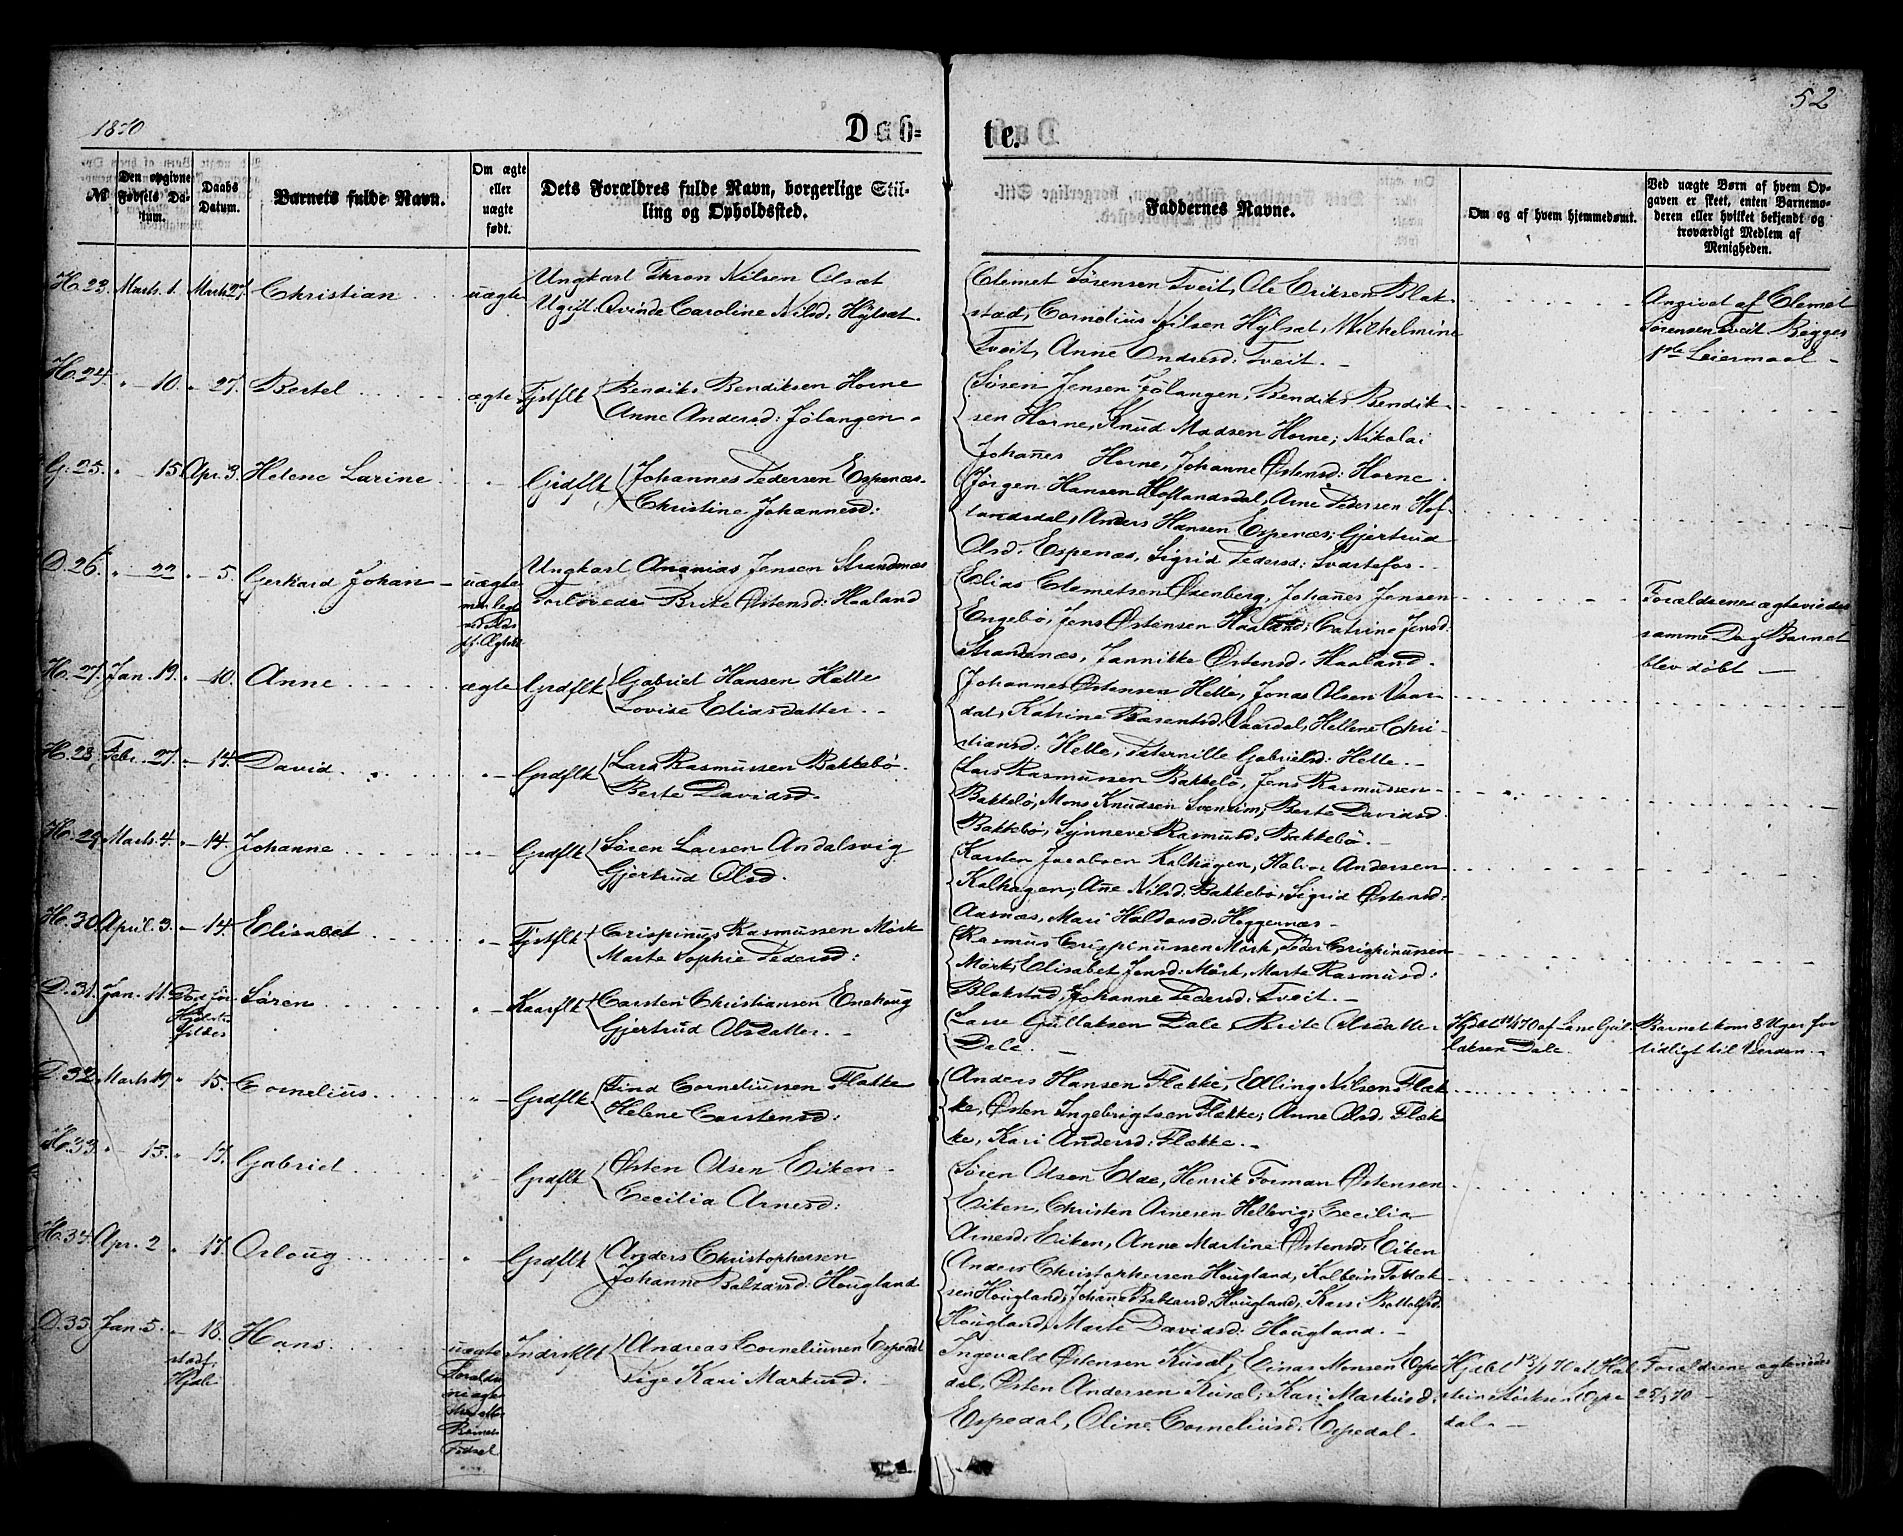 1870
Daab-
te.
52
№
Den opgivne Fødsels Datum.
Daabs Datum.
Barnets fulde Navn.
Om ægte eller uægte født.
Dets Forældres fulde Navn, borgerlige Stilling og Opholdssted.
Faddernes Navne.
Om og af hvem hjemmedøbt.
Ved uægte Børn af hvem Opgaven er skeet, enten Barnemoderen eller hvilket bekjendt og troværdigt Medlem af Menigheden.
H. 23. Marts. 1. Marts 27. Christian uægte
Ungkarl Thron Nilsen Olsæt
Ugift Qvinde Caroline Nilsd: Hylsæt.
Clemet Sørensen Tveit, Ole Eriksen Blak-
stad, Cornelius Nilsen Hylsæt, Wilhelmine
Tveit, Anne Endresd: Tveit.
Angivet af Clemet
Sørensen Tveit Begges
Leiermaal
H. 24. " 10. " 27. Bertel ægte Tjstflk
Bendik Bendiksen Horne
Anne Andersd: Jølangen
Søren Jensen Jølangen, Bendik Bendik-
sen Horne, Knud Madsen Horne, Nikolai
Johanes Horne, Johanne Østensd: Horne.
G. 25. " 15. Apr. 3. Helene Larine " Grdflk
Johannes Pedersen Espenæs
Christine Johannesd:
Jørgen Hansen Hoflandsdal, Arne Pedersen Hof-
landsdal, Anders Hansen Espenæs, Gjertrud
Olsd. Espenæs, Sigrid Pedersd: Svartefos.
D. 26. " 22 " 5. Gerhard Johan uægte
Ungkarl Ananias Jensen Strandenæs
Forlovede Brite Østensd: Haaland
Elias Clemetsen Østenberg, Johanes Jensen
Engebø, Jens Østensen Haaland, Catrine Jensd:
Strandenæs, Jannikke Østensd: Haaland.
Forældrene ægteviedes
samme Dag Barnet
blev døbt
H. 27. Jan. 19. " 10. Anne ægte Grdflk
Gabriel Hansen Helle
Lovise Eliasdatter.
Johannes Østensen Helle, Jonas Olsen Vaar-
dal, Katrine Barentsd: Vaardal, Hellene Chri-
stiansd: Helle, Peternille Gabrielsd: Helle.
H. 28. Febr. 27. " 14. David " Grdflk
Lars Rasmussen Bakkebø.
Berte Davidsd.
Lars Rasmussen Bakkebø, Jens Rasmussen
Bakkebø, Mons Knudsen Svensim, Berte Davidsd
Bakkebø, Synneve Rasmusd: Bakkebø.
H. 29. Marts. 4. " 14. Johanne " Grdflk
Søren Larsen Andalsvig
Gjertrud Olsd.
Karsten Jacobsen Kalhagen, Halvor Andersen
Kalhagen, Ane Nilsd: Bakkebø, Sigrid Østensd:
Aasnæs, Mari Haldorsd: Heggernæs
H. 30. April. 3. " 14. Elisabet " Tjstflk
Crispinus Rasmussen Mørk
Marte Sophie Pedersd:
Rasmus Crispinussen Mørk, Peder Crispinussen
Mørk, Elisabet Jensd: Mørk, Marte Rasmusd:
Blakstad, Johanne Pedersd: Tveit.
D. 31. Jan. 11. Søren " Kaarflk
Carsten Christiansen Enehoug
Gjertrud Olsdatter.
Lasse Gullaksen Dale Brite Olsdatter
Dale.
af Lasse Gul-
laksen Dale.
Barnet kom 8 Uger for
tidligt til Verden.
D. 32. Marts 19. " 15. Cornelius " Grdflk
Find Corneliussen Flække
Helene Carstensd:
Anders Hansen Flække, Edling Nilsen Flæk-
ke, Østen Ingebrigtsen Flække, Anne Olsd: Flæk-
ke, Kari Andersd: Flække.
H. 33. " 13. " 17. Gabriel " Grdflk
Østen Olsen Eiken
Cecilia Arnesd:
Søren Olsen Elde, Henrik Forman Østensen
Eiken, Christen Arnesen Hellevig, Cecilia
Arnesd: Eiken, Anne Martine Østensd: Eiken
H. 34. Apr. 2 " 17. Orloug " Grdflk
Anders Christophersen
Johanne Balzersd: Hougland
Anders Christophersen Hougland, Kolbein
sen Hougland, Johane Balzersd: Hougland, Kari
Hougland, Marte Davidsd: Hougland.
D. 35. Jan. 5. " 18. Hans. uægte Indrstflk
stadf.
Hjdb
Andreas Corneliussen Espedal
Pige Kari Markusd.
Ingevald Østensen Kusal, Einar Monsen Espe-
dal, Østen Andersen Kusal, Kari Markusd:
Espedal, Oline Corneliusd: Espedal.
Hjdbt 13/1 70 af
Espe-
dal.
Forældrene ægteviedes